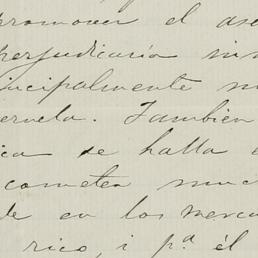 promover el ase
perjudicaría inm
incipalmente m
eruela. También
ica se halla e
cometen muc
de en los merca
rico, i p.ª él